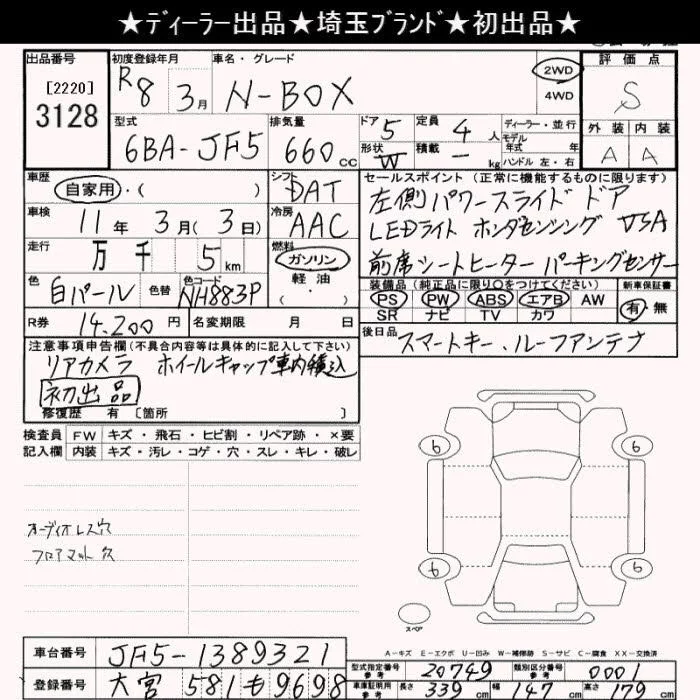 ★ディーラー出品★埼玉ブランド★初出品★
出品番号 初度登録年月 車名・グレード 評価点
[2220] R8 3月 N-BOX 2WD S
3128 4WD
型式 排気量 ドア 5 定員 4人 ディーラー・並行 外装 内装
6BA-JF5 660cc 形状 W 積載 ー kg モデル年式 年 A A
ハンドル 左・右
車歴 自家用・( ) シフト DAT セールスポイント (正常に機能するものに限ります)
左側パワースライドドア
車検 11年3月(3日) 冷房 AAC LEDライト ホンダセンシング VSA
走行 万 千 5km 燃料 ガソリン 前席シートヒーター パーキングセンサー
軽油・( )
色 白パール 色替 色コード NH883P 装備品 (純正品に限り○をつけてください) 新車保証書
PS PW ABS エアB AW 有・無
SR ナビ TV カワ
R券 14,200円 名変期限 月 日 後日品 スマートキー、ルーフアンテナ
注意事項申告欄 (不具合内容等は具体的に記入して下さい)
リアカメラ ホイールキャップ車内積込
初出品
修復歴 有 [箇所 ]
検査員 FW キズ・飛石・ヒビ割・リペア跡・×要
記入欄 内装 キズ・汚レ・コゲ・穴・スレ・キレ・破レ
6 6
オーディオレス穴
フロアマット欠
6 6
スペア
A-キズ E-エクボ U-凹み W-補修跡 S-サビ C-腐食 XX-交換済
車台番号 JF5-1389321 型式指定番号 参考 20749 類別区分番号 参考 0001
登録番号 大宮 581 も 9698 車庫証明用 参考 長さ 339cm 幅 147cm 高さ 179cm